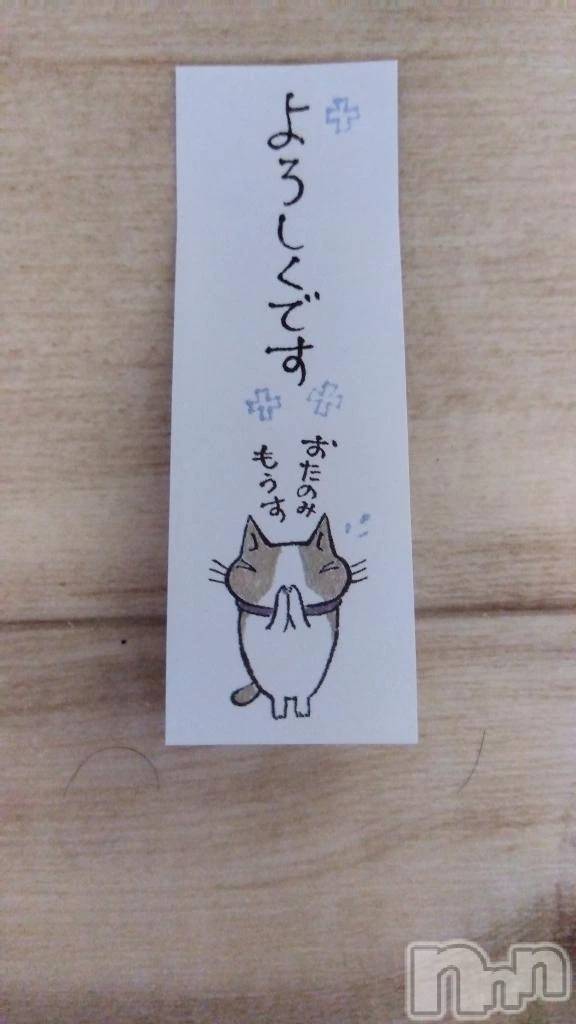 よろしくです
おたのみ
もうす
nnn